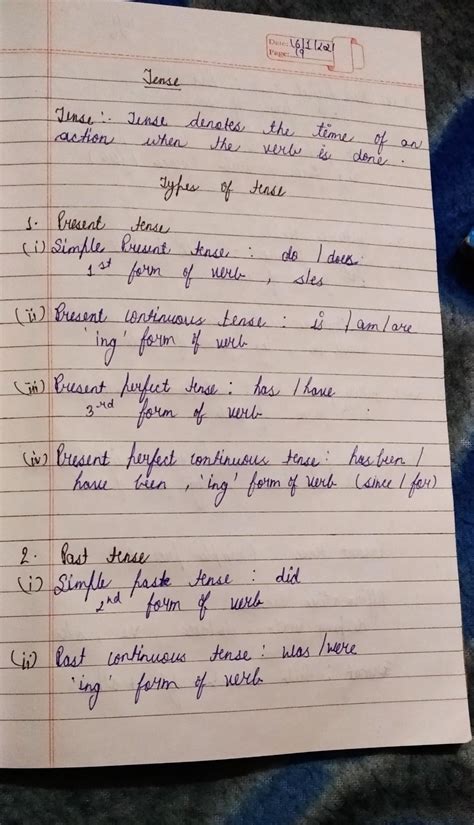 Date: 16/1/202
Page: 19
Tense
Tense :- Tense denotes the time of an
action when the verb is done.
Types of tense
1. Present tense
(i) Simple Present tense : do / does
1st form of verb, s/es
(ii) Present continuous tense : is / am / are
'ing' form of verb
(iii) Present perfect tense : has / have
3rd form of verb
(iv) Present perfect continuous tense : has been /
have been, 'ing' form of verb (since / for)
2. Past tense
(i) Simple paste tense : did
2nd form of verb
(ii) Past continuous tense : was / were
'ing' form of verb